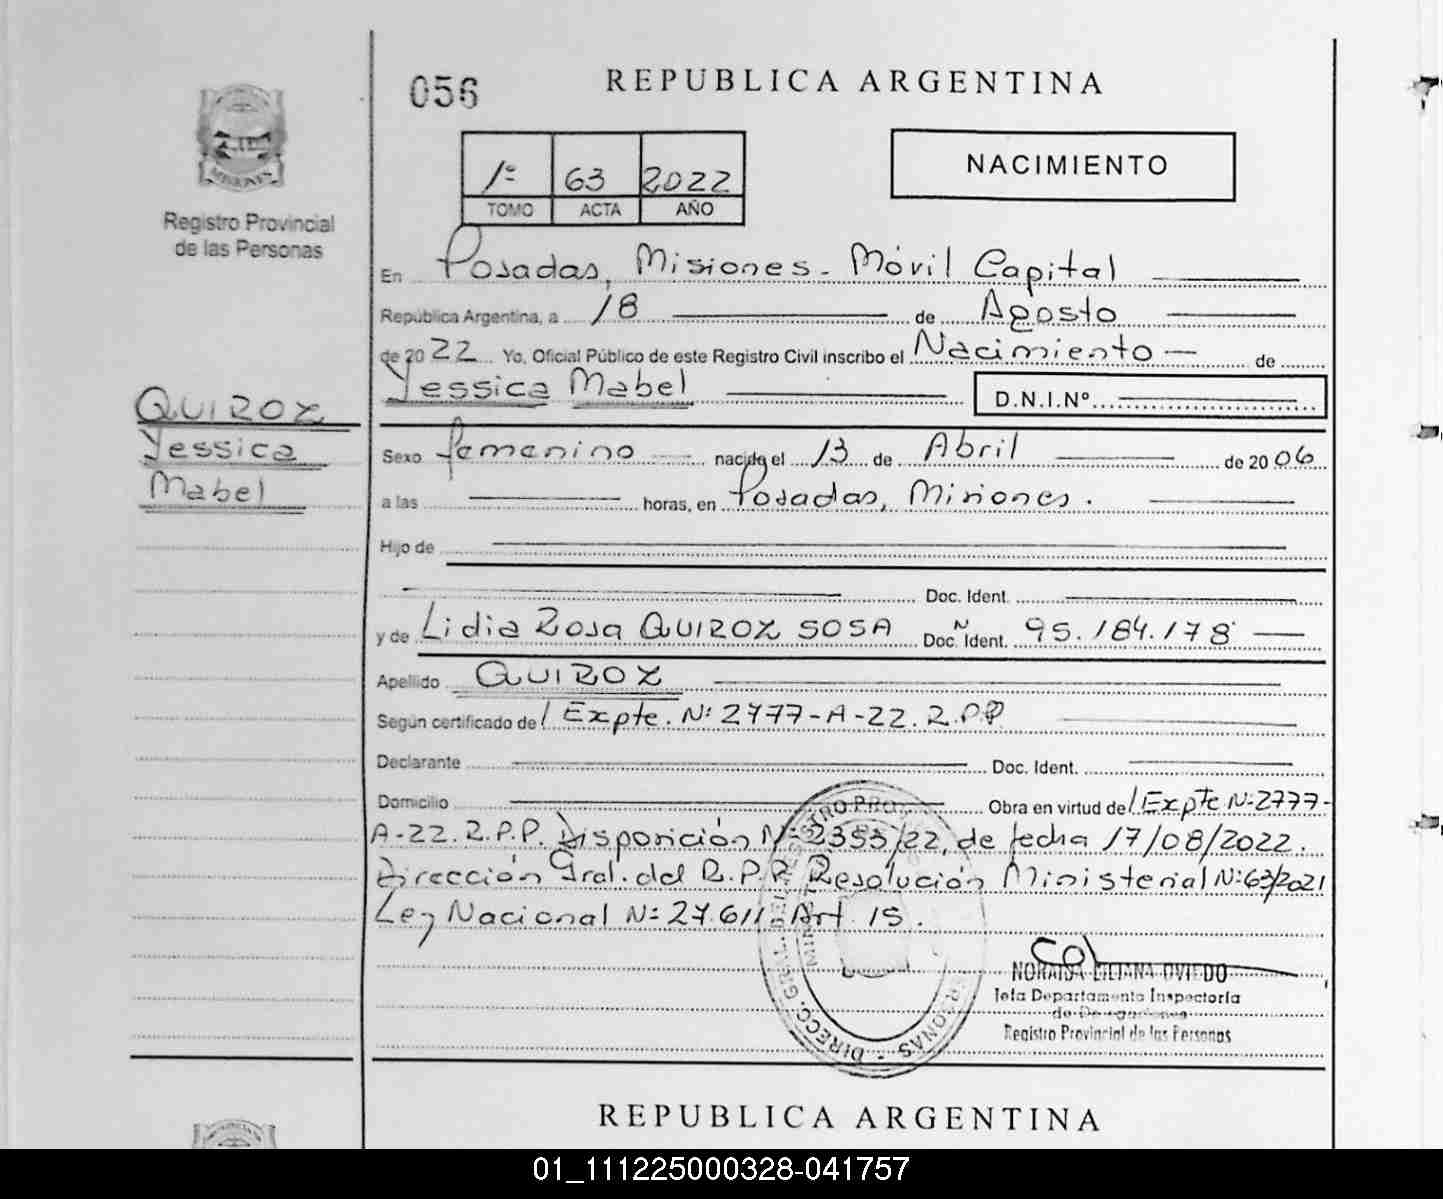 056
REPUBLICA ARGENTINA
1º 63 2022
TOMO ACTA AÑO
NACIMIENTO
MISIONES
Registro Provincial
de las Personas
En Posadas, Misiones - Móvil Capital
República Argentina, a 18 de Agosto
de 2022 Yo, Oficial Público de este Registro Civil inscribo el Nacimiento de
Yessica Mabel D.N.I.Nº
QUIROZ
Yessica
Mabel
Sexo femenino nacido el 13 de Abril de 2006
a las horas, en Posadas, Misiones.
Hijo de
Doc. Ident.
y de Lidia Rosa QUIROZ SOSA Doc. Ident. 95.184.178
Apellido QUIROZ
Según certificado de Expte. Nº 2777-A-22. R.P.P
Declarante Doc. Ident.
Domicilio Obra en virtud de Expte Nº 2777-
A-22. R.P.P. Disposición Nº 2353/22, de fecha 17/08/2022.
Dirección Gral. del R.P.P. Resolución Ministerial Nº 63/2021
Ley Nacional Nº 27.611 Art 15.
NORAISA LILIANA OVIEDO
Jefa Departamento Inspectoría
de Delegaciones
Registro Provincial de las Personas
DIRECC. GRAL. DEL REGISTRO PRO PERSONAS
REPUBLICA ARGENTINA
01_111225000328-041757